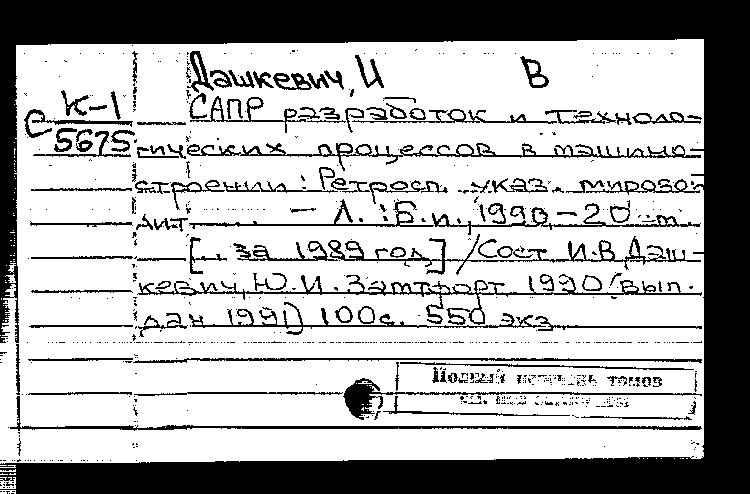 Дашкевич, И В
е К-1
5675
САПР разработок и техноло-
гических процессов в машино-
строении : Ретросп. указ. мировой
лит. . . . — Л. : Б.и., 1990, – 20 см.
[.. за 1989 год] / Сост И.В Даш-
кевич, Ю.И. Затфорт 1990 (вып.
дан 1991) 100с. 550 экз
Полный перечень томов